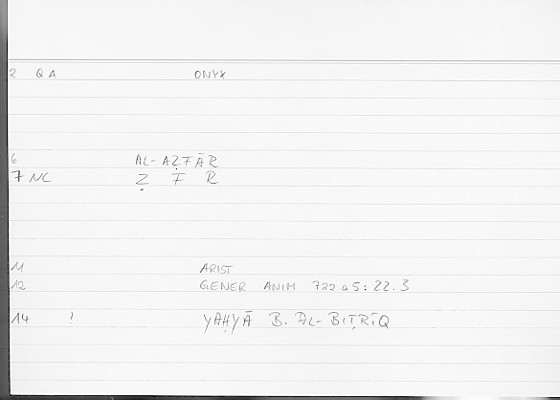 2 QA ONYX
6 AL-AẒFĀR
7 NC Ẓ F R
11 ARIST
12 GENER ANIM 722 a5: 22.3
14 ! YAḤYĀ B. AL-BIṬRĪQ